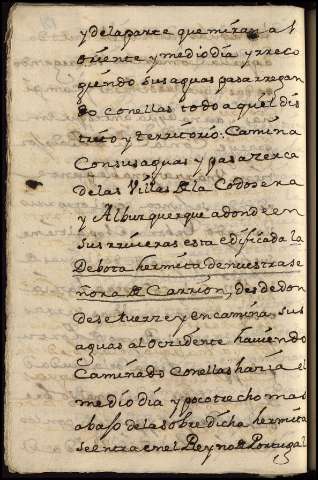 y dela parte que miran al
oriente y medio dia y rreco
giendo sus aguas pasa rregan
do con ellas todo aquel dis
trito y territorio. Camina
Con sus aguas y pasa zerca
de las Villas de la Codosena
y Alburquerque adonde en
sus rriveras esta edificada la
Debota hermita de nuestra se
ñora de Carrion, desde don
de se tuerze y encamina sus
aguas al oczidente haviendo
Caminado con ellas hazia el
medio dia y poco trecho mas
abajo de la sobre dicha hermita
se entra en el Reyno de Portugal